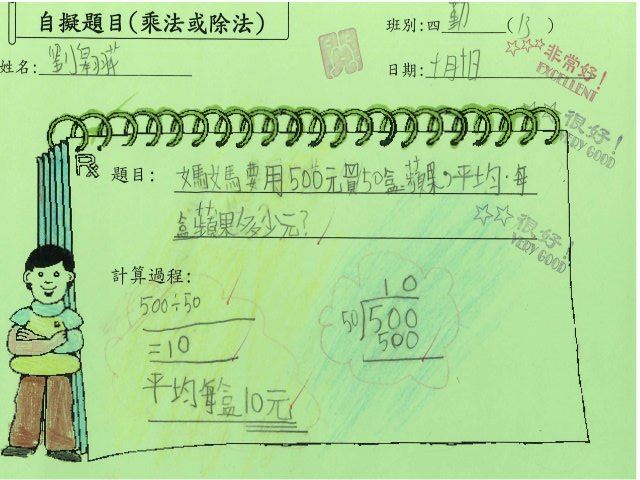 自擬題目(乘法或除法)
班別:四勤(13)
姓名:劉
日期:十月廿日
非常好!
EXCELLENT
很好!
VERY GOOD
題目: 媽媽要用500元買50盒蘋果,平均每
盒蘋果多少元?
很好!
VERY GOOD
計算過程:
500÷50
=10
平均每盒10元
10
50 500
500